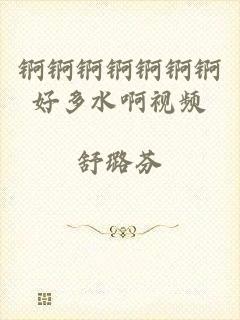 锕锕锕锕锕锕锕
好多水啊视频
舒璐芬